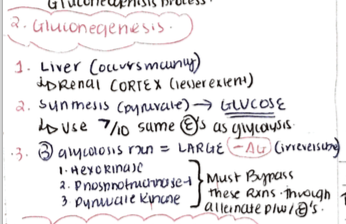 Gluconeogenesis process
2. Gluconegenesis.
1. Liver (occurs mainly)
↳ Renal CORTEX (lesser extent)
2. Synthesis (pyruvate) → GLUCOSE
↳ Use 7/10 same E's as glycolysis.
3. ③ glycolosis rxn = LARGE -ΔG (irreversible)
1. Hexokinase
2. Phosphofructinase-1
3 Pyruvate kinase
Must Bypass
these Rxns. through
alternate plus E's.